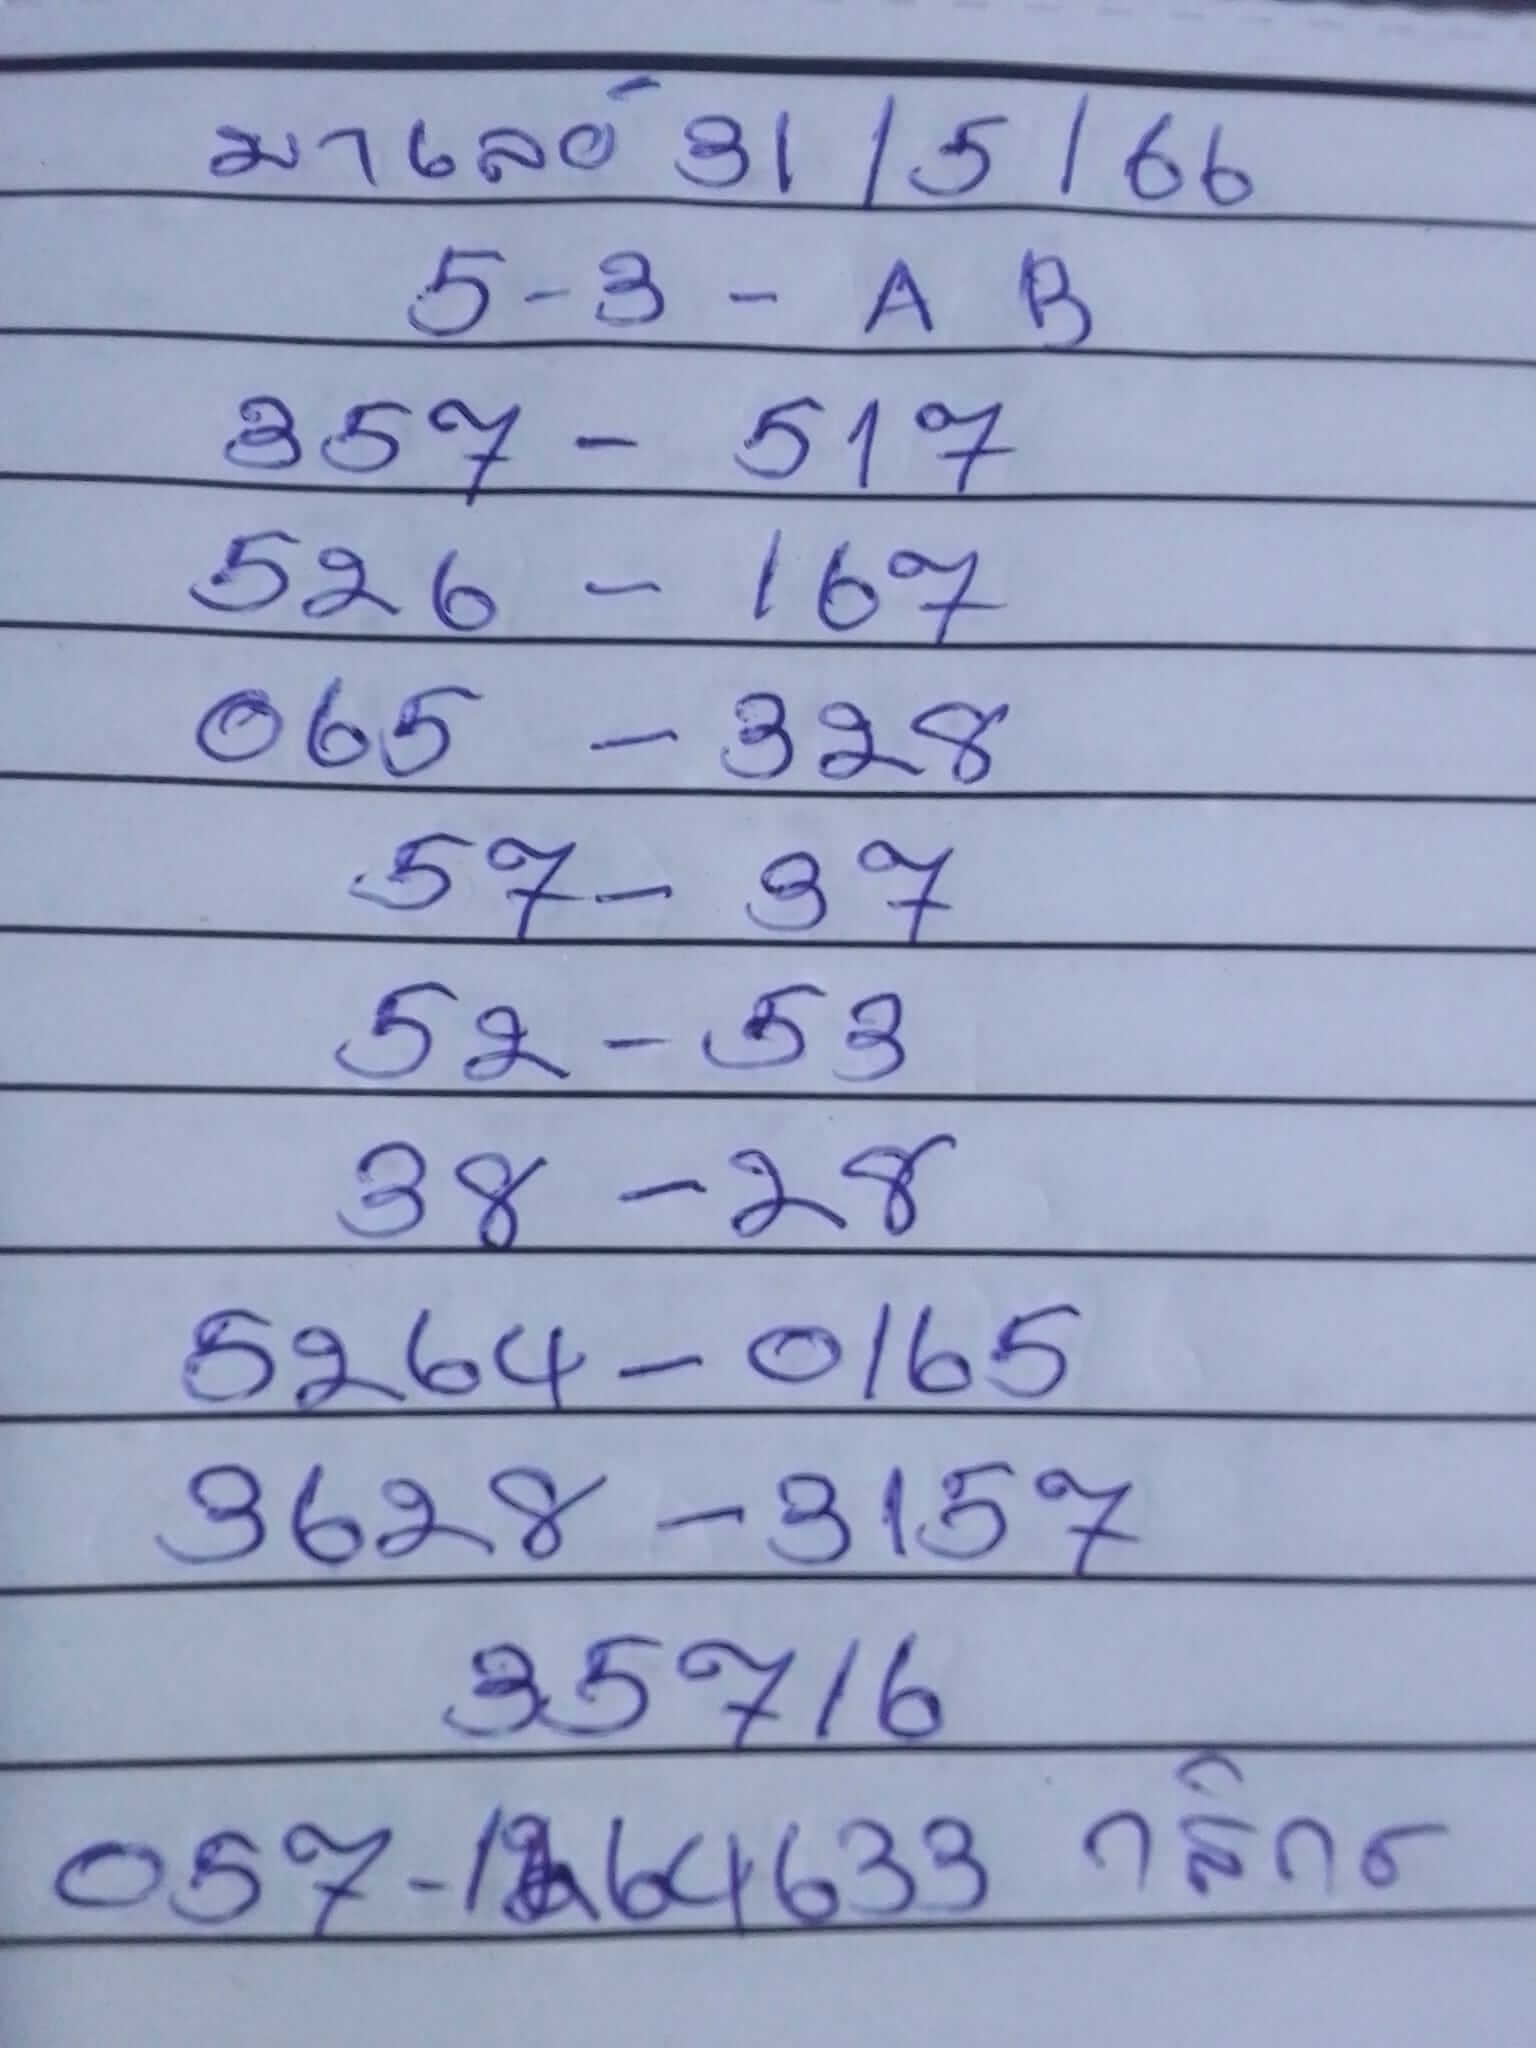 มาเลย์ 31/5/66
5-3- A B
357 - 517
526 - 167
065 - 328
57 - 37
52 - 53
38 - 28
5264 - 0165
3628 - 3157
35716
กสิกร